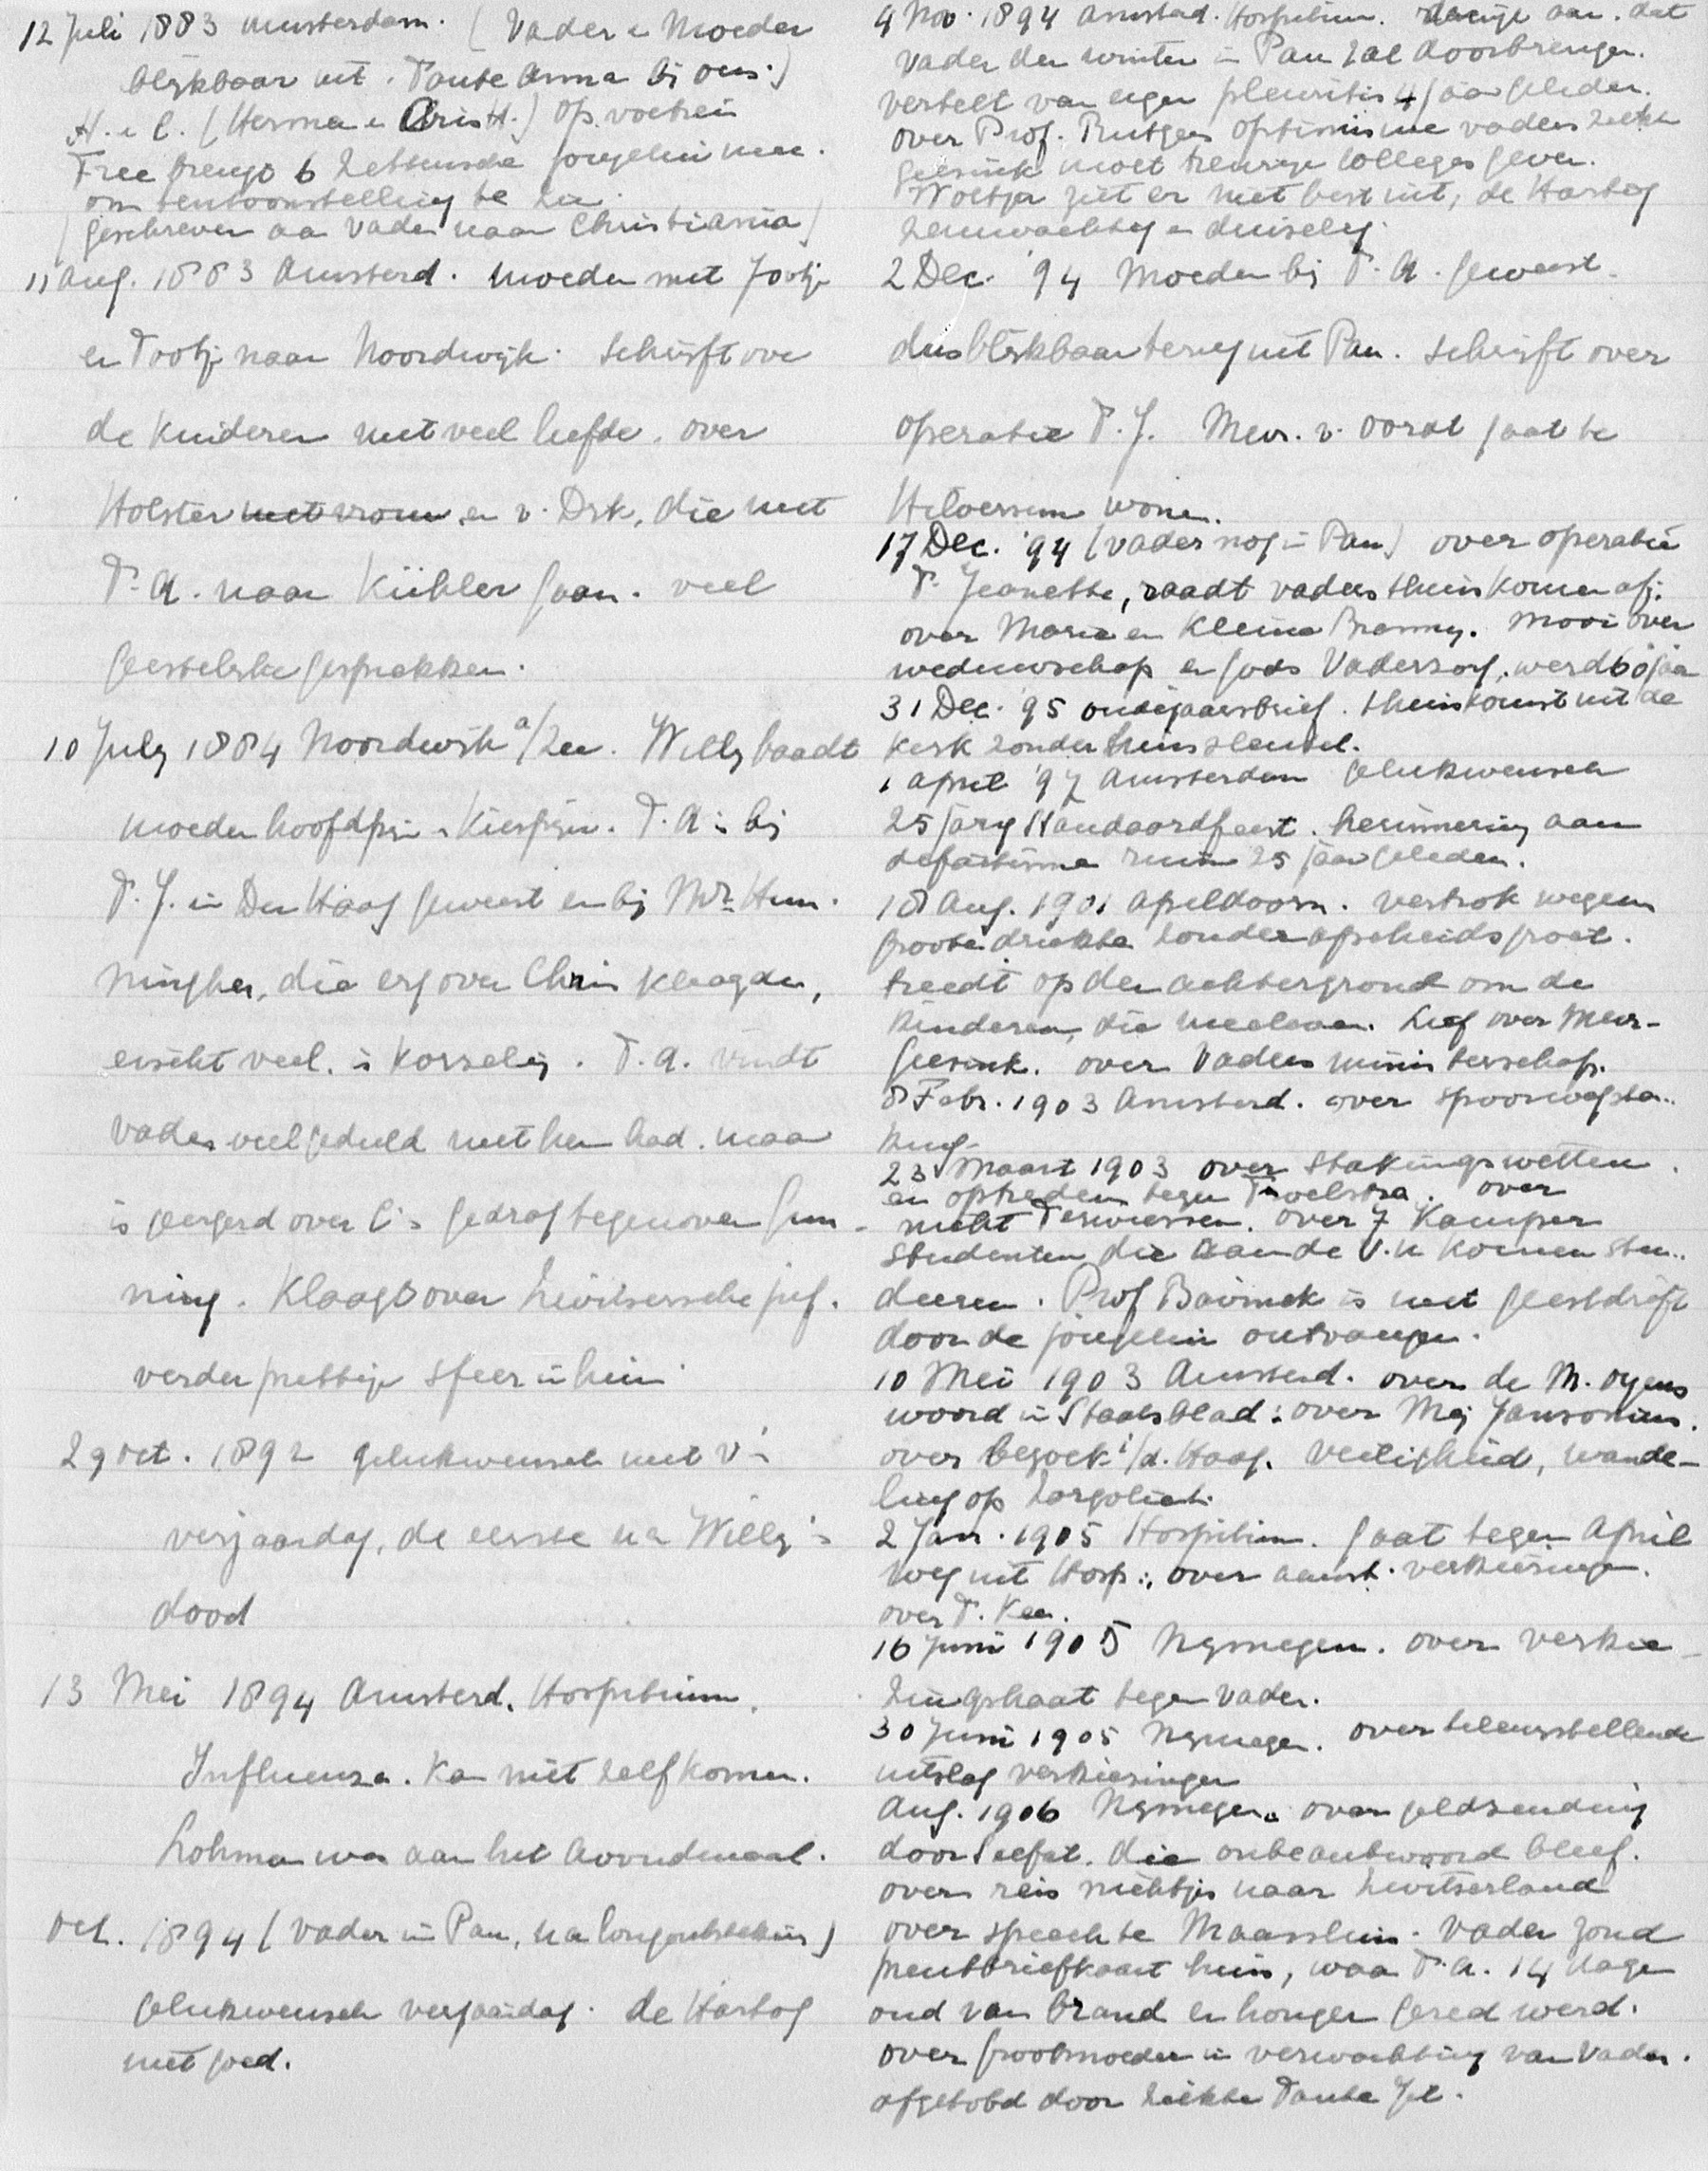 12 Juli 1883 Amsterdam. (Vader en Moeder
blijkbaar uit. Tante Anna bij ons.)
H. e C. (Herma en Chris H.) op voetreis
Free brengt 6 Zettensche jongelui mee.
om tentoonstelling te zien.
(geschreven aan Vader naar Christiania)
11 Aug. 1883 Amsterd. Moeder met Jootje
en Tootje naar Noordwijk. Schrijft over
de kinderen met veel liefde. over
Holster met vrouw en v. Dijk, die met
T. A. naar Kühler gaan. veel
geestelijke gesprekken.
10 July 1884 Noordwijk a/Zee. Willy baadt
moeder hoofdpijn, kiespijn. T. A. is bij
T. J. in Den Haag geweest en bij Mr. Hun.
ningher, die erg over Chris klaagden,
eischt veel, is korzelig. T. A. vindt
vader veel geduld met hem had. maar
is geergerd over C's gedrag tegenover Gun-
ning. Klaagt over Zwitsersche juf.
verder prettige sfeer in huis
29 Oct. 1892 gelukwensch met V's
verjaardag, de eerste na Willy's
dood
13 Mei 1894 Amsterd. Hospitium.
Influenza. Kan niet zelf komen.
Lohman was aan het Avondmaal.
Oct. 1894 (Vader in Pau, na longontsteking)
gelukwensch verjaardag. de Hartog
niet goed.
4 Nov. 1894 Amstad. Hospitium. dat
Vader den winter in Pau zal doorbrengen.
vertelt van eigen pleuritis 4 jaar geleden.
over Prof. Rutgers optimisme vaders ziekte
Geesink moet treurige colleges geven.
Woltjer ziet er niet best uit, de Hartog
zenuwachtig en duizelig.
2 Dec. '94 Moeder bij T. A. geweest.
dus blijkbaar terug uit Pau. Schrijft over
operatie T. J. Mevr. v. Oordt gaat te
Hilversum wonen.
17 Dec. '94 (Vader nog in Pau) over operatie
T. Jeanette, raadt vaders thuiskomen af.
over Marie en kleine Pranny. Mooi over
weduwschap en Gods Vaderzorg, werd 60 jaar
31 Dec. '95 oudejaarsbrief. thuiskomst uit de
kerk zonder huissleutel.
1 April '97 Amsterdam gelukwensch
25 jarig Standaardfeest. herinnering aan
ruim 25 jaar geleden.
18 Aug. 1901 Apeldoorn. vertrok wegens
groote drukte zonder afscheidsgroet.
treedt op den achtergrond om de
kinderen, die meeleven. Lief over Mevr.
Geesink. over Vaders ministerschap.
8 Febr. 1903 Amsterd. over spoorwegsta..
king
23 Maart 1903 over stakingswetten
en optreden tegen Troelstra. over
nicht Terwiessen. over 7 Kamper
Studenten die aan de V.U. komen stu..
deeren. Prof Bavinck is met geestdrift
door de jongelui ontvangen.
10 Mei 1903 Amsterd. over de M. Oyens
woord in Staatsblad: over Mej Jansonius.
over bezoek i/d. Haag. Veiligheid, wande-
ling op
2 Jan. 1905 Hospitium. gaat tegen April
weg uit Hosp., over aanst. verkiezingen.
over T. Kee.
16 Juni 1905 Nijmegen. over verkie-
zingshaat tegen Vader.
30 Juni 1905 Nijmegen. over teleurstellende
uitslag verkiezingen
Aug. 1906 Nijmegen. over geldzending
door Seefat. die onbeantwoord bleef.
over reis nichtjes naar Zwitserland
over speech te Maassluis. Vader zond
prentbriefkaart huis, waar T. A. 14 dagen
oud van brand en honger gered werd.
over grootmoeder in verwachting van Vader.
afgetobd door ziekte Tante Jet.